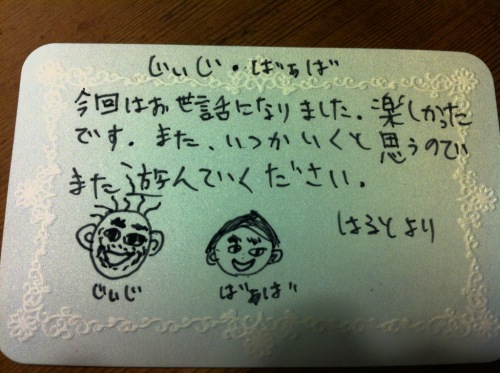 じいじ・ばぁば
今回はお世話になりました。楽しかった
です。また、いつかいくと思うので
また遊んでいください。
はるとより
じいじ
ばあば